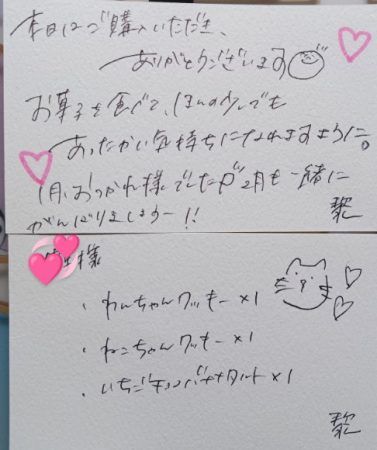 本日はご購入いただき、
ありがとうございます
お菓子を食べて、ほんの少しでも
あったかい気持ちになれますように。
1月、おつかれ様でした 2月も一緒に
がんばりましょうー!!
黎
様
・わんちゃんクッキー×1
・ねこちゃんクッキー×1
・いちご タルト×1
黎